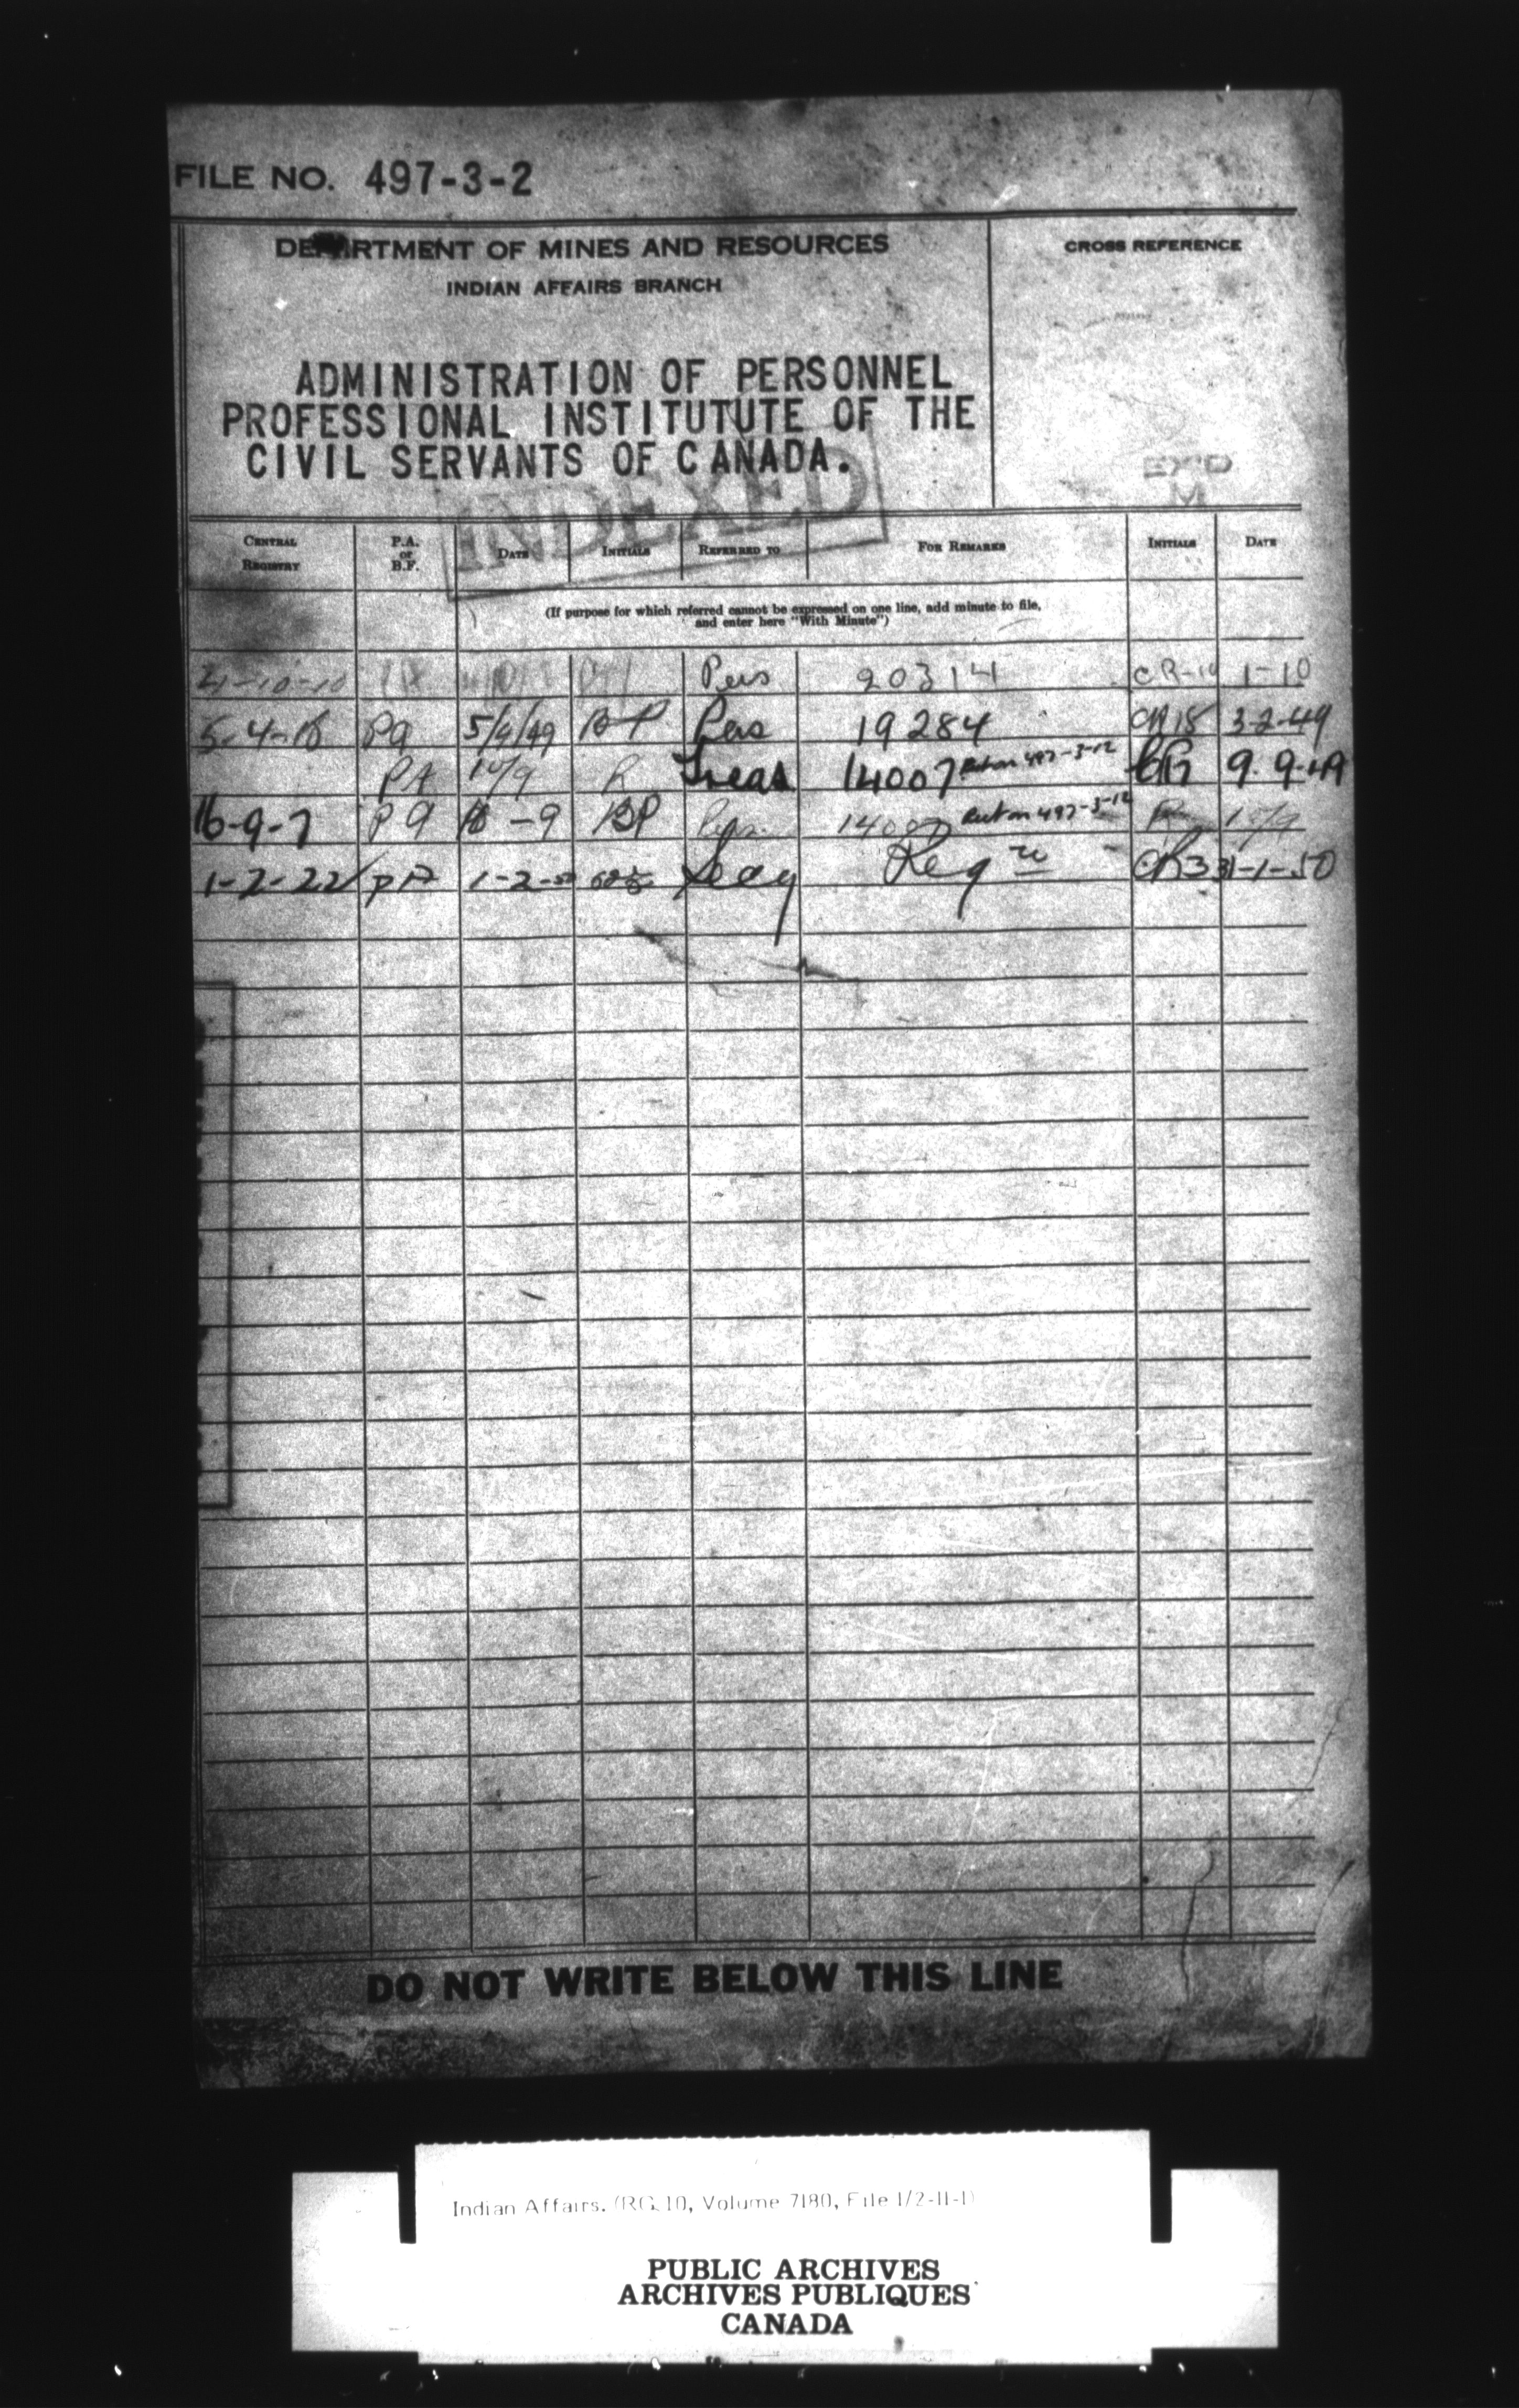 FILE NO. 497-3-2
DEPARTMENT OF MINES AND RESOURCES
INDIAN AFFAIRS BRANCH
CROSS REFERENCE
ADMINISTRATION OF PERSONNEL
PROFESSIONAL INSTITUTUTE OF THE
CIVIL SERVANTS OF CANADA.
INDEXED
CENTRAL REGISTRY P.A. or B.F. DATE INITIALS REFERRED TO FOR REMARKS INITIALS DATE
(If purpose for which referred cannot be expressed on one line, add minute to file,
and enter here "With Minute")
4-10-10 Pers 20314 CR-14 1-10
5-4-18 Pa 5/4/49 BP Pers 19284 CR18 3-2-49
PA 10/9 R Treas 14007 497-3-12 9.9.49
16-9-7 Pa -9 BP 497-3-12 15/9
1-2-22 PA 1-2-50 Secy Req CR3 31-1-50
DO NOT WRITE BELOW THIS LINE
Indian Affairs. (RG 10, Volume 7180, File 1/2-11-1)
PUBLIC ARCHIVES
ARCHIVES PUBLIQUES
CANADA